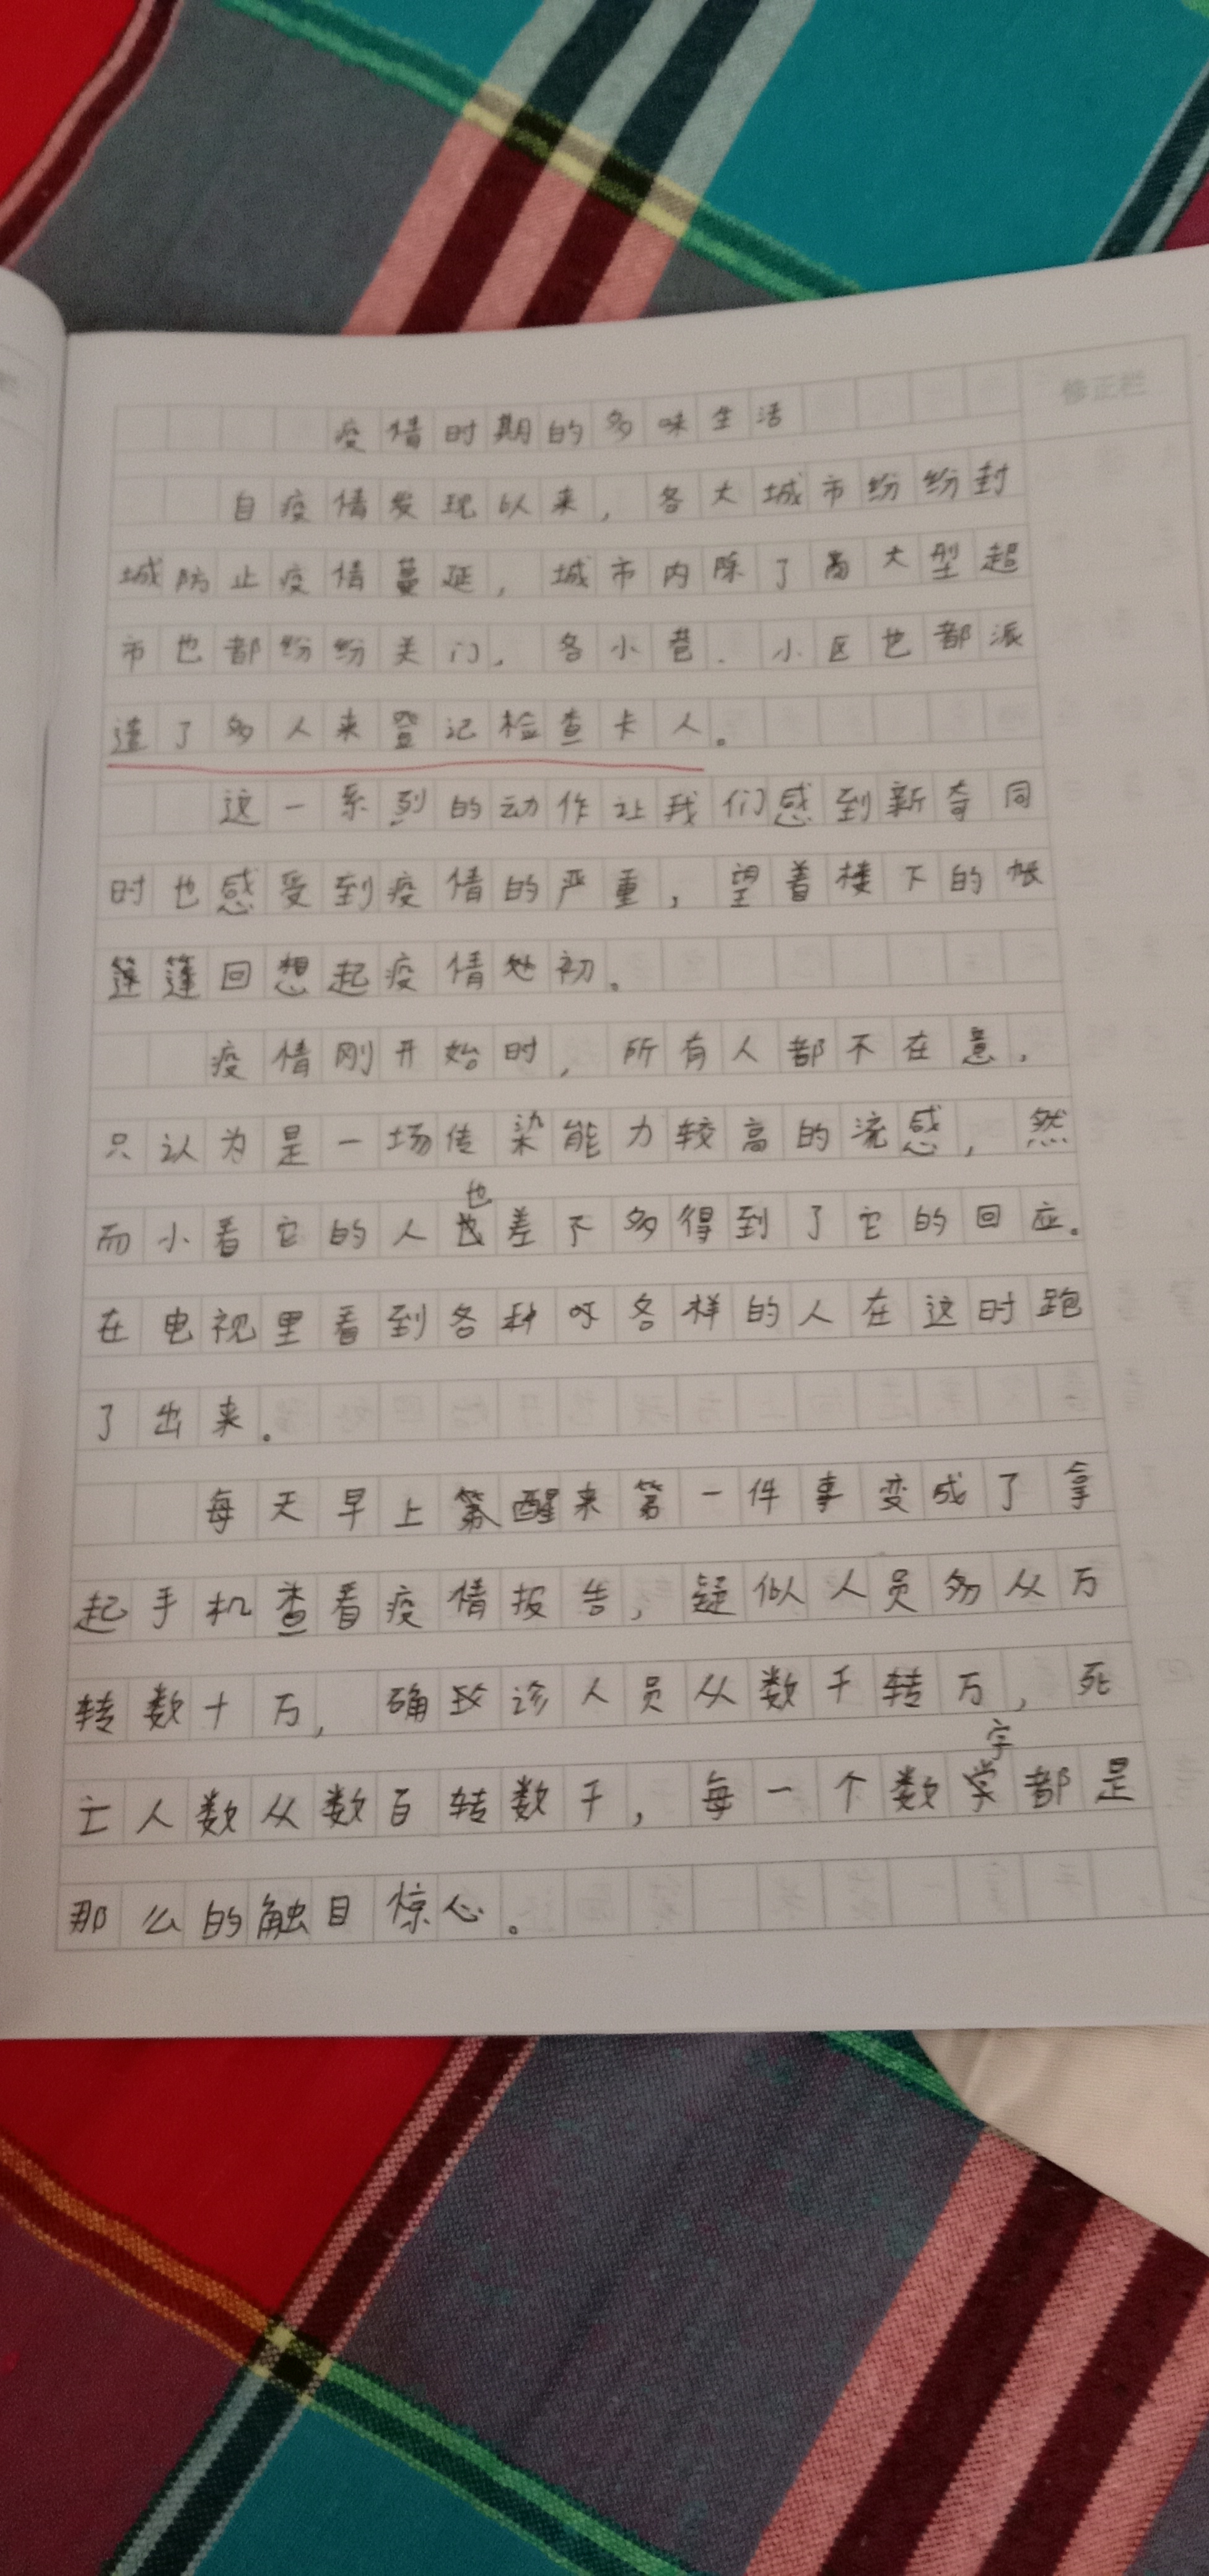 修正栏
疫情时期的多味生活
自疫情发现以来，各大城市纷纷封
城防止疫情蔓延，城市内除了高大型超
市也都纷纷关门，各小巷、小区也都派
遣了多人来登记检查卡人。
这一系列的动作让我们感到新奇同
时也感受到疫情的严重，望着楼下的帐
篷回想起疫情处初。
疫情刚开始时，所有人都不在意，
只认为是一场传染能力较高的流感，然
而小看它的人也差不多得到了它的回应。
在电视里看到各种各样的人在这时跑
了出来。
每天早上醒来第一件事变成了拿
起手机查看疫情报告，疑似人员多从万
转数十万，确诊人员从数千转万，死
亡人数从数百转数千，每一个数字都是
那么的触目惊心。